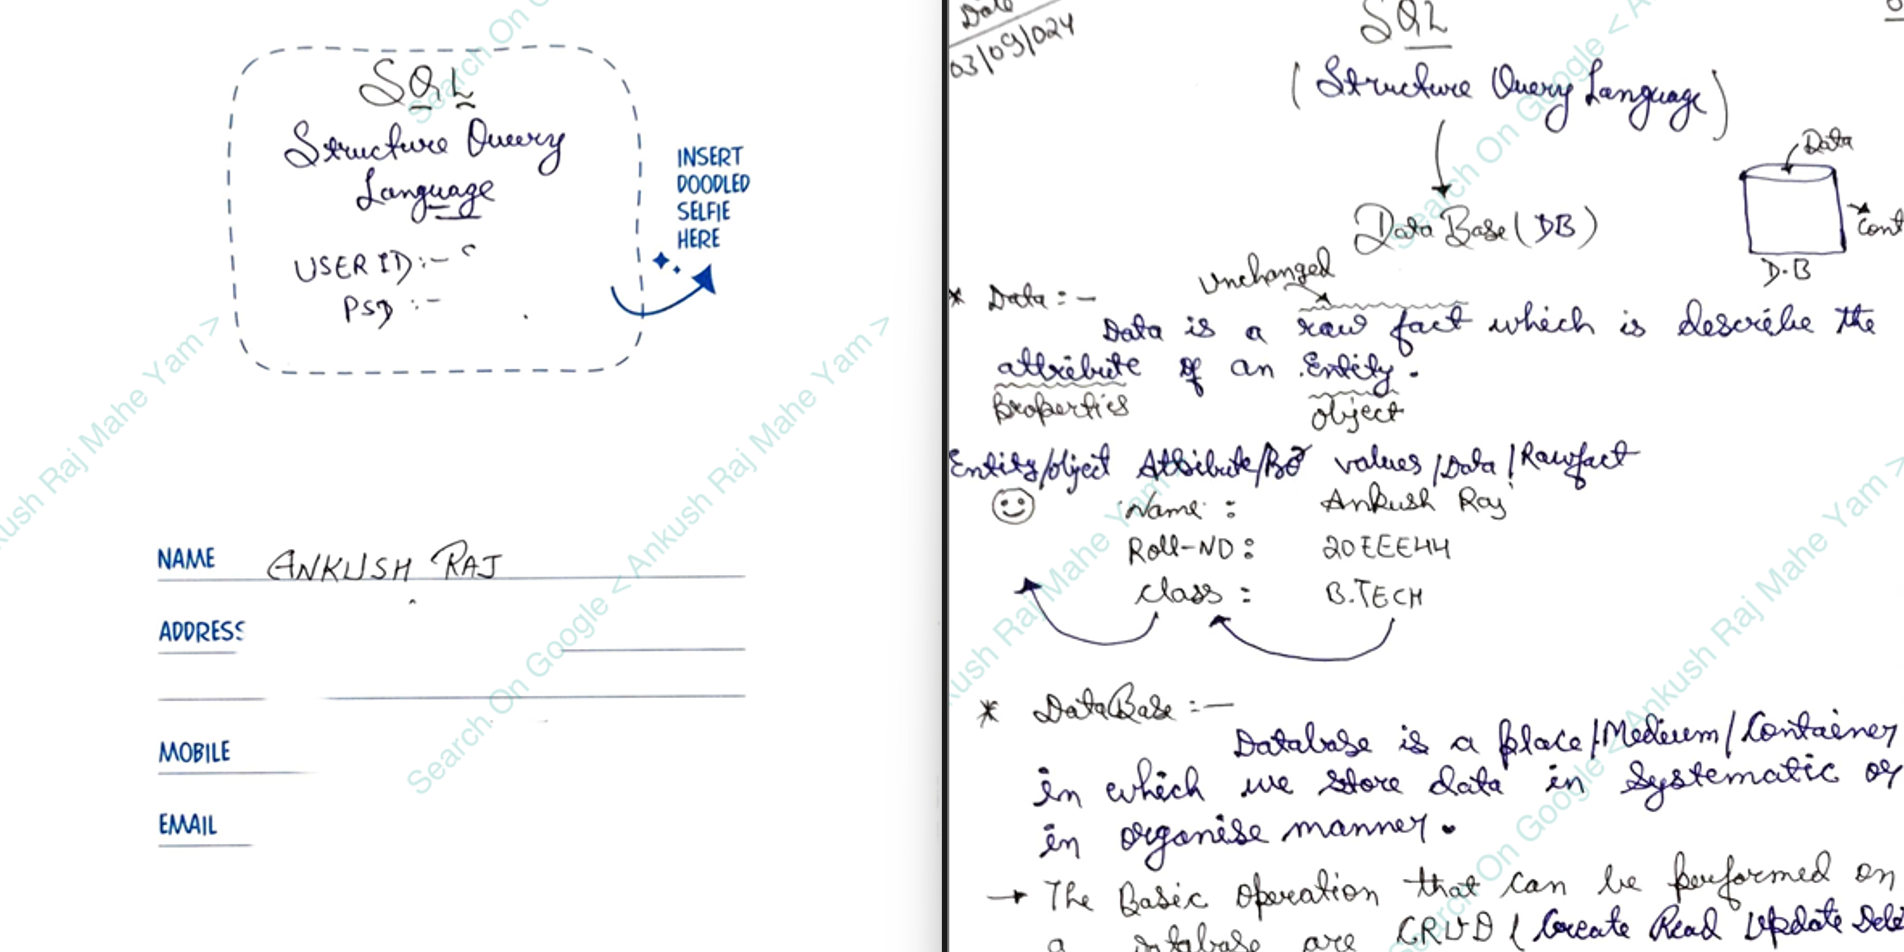 SQL
Structure Query
Language
USER ID:-
PSD :-
INSERT
DOODLED
SELFIE
HERE
NAME ANKUSH RAJ
ADDRESS
MOBILE
EMAIL
Search On Google < Ankush Raj Mahe Yam >
Date
03/09/024
SQL
(Structure Query Language)
Data Base (DB)
Data
Cont
D.B
* Data :-
Unchanged
Data is a raw fact which is describe the
attribute of an Entity.
Properties object
Entity/object Attribute/ values/Data/Rawfact
Name : Ankush Raj
Roll-NO : 20EEE44
class : B.TECH
* DataBase :-
Database is a place/Medium/Container
in which we store data in Systematic or
in organise manner.
→ The Basic operation that can be performed on
a database are CRUD (Create Read Update Dele
Search On Google < Ankush Raj Mahe Yam >